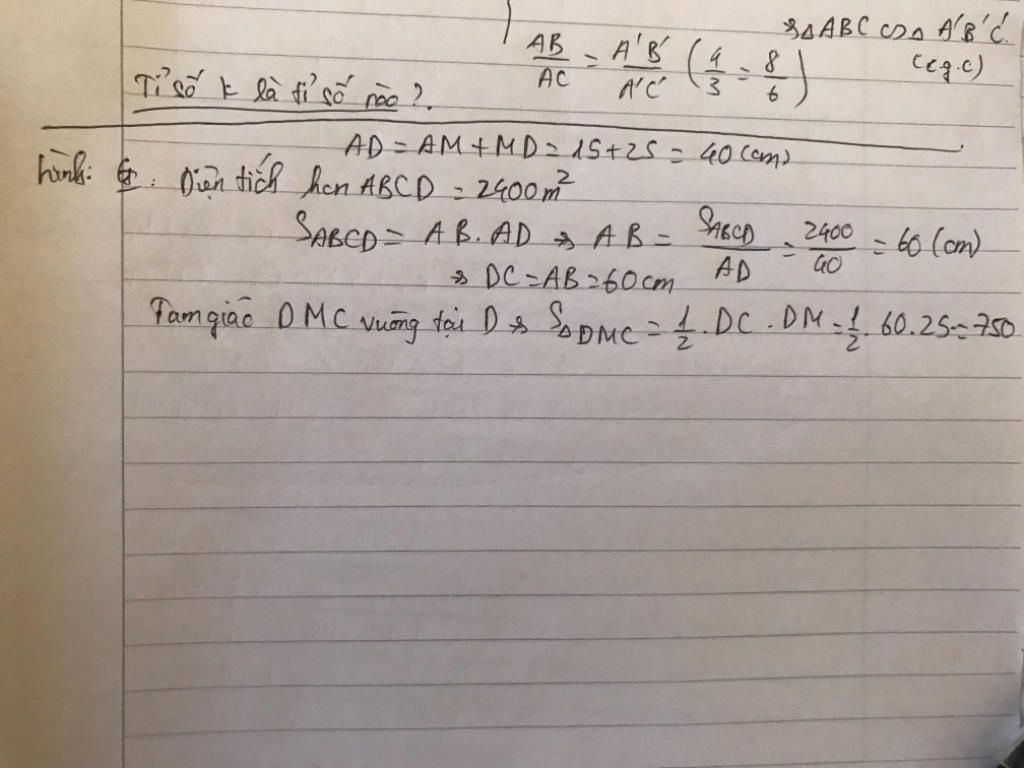 ⇒ΔABC ∽ Δ A'B'C'
AB/AC = A'B'/A'C' (4/3 = 8/6) (c.g.c)
Tỉ số k là tỉ số nào?
AD = AM + MD = 15 + 25 = 40 (cm)
hình: Diện tích hcn ABCD = 2400m²
S_ABCD = AB. AD ⇒ AB = S_ABCD/AD = 2400/40 = 60 (cm)
⇒ DC = AB = 60cm
Tam giác DMC vuông tại D ⇒ S_ΔDMC = 1/2 . DC . DM = 1/2 . 60.25 = 750